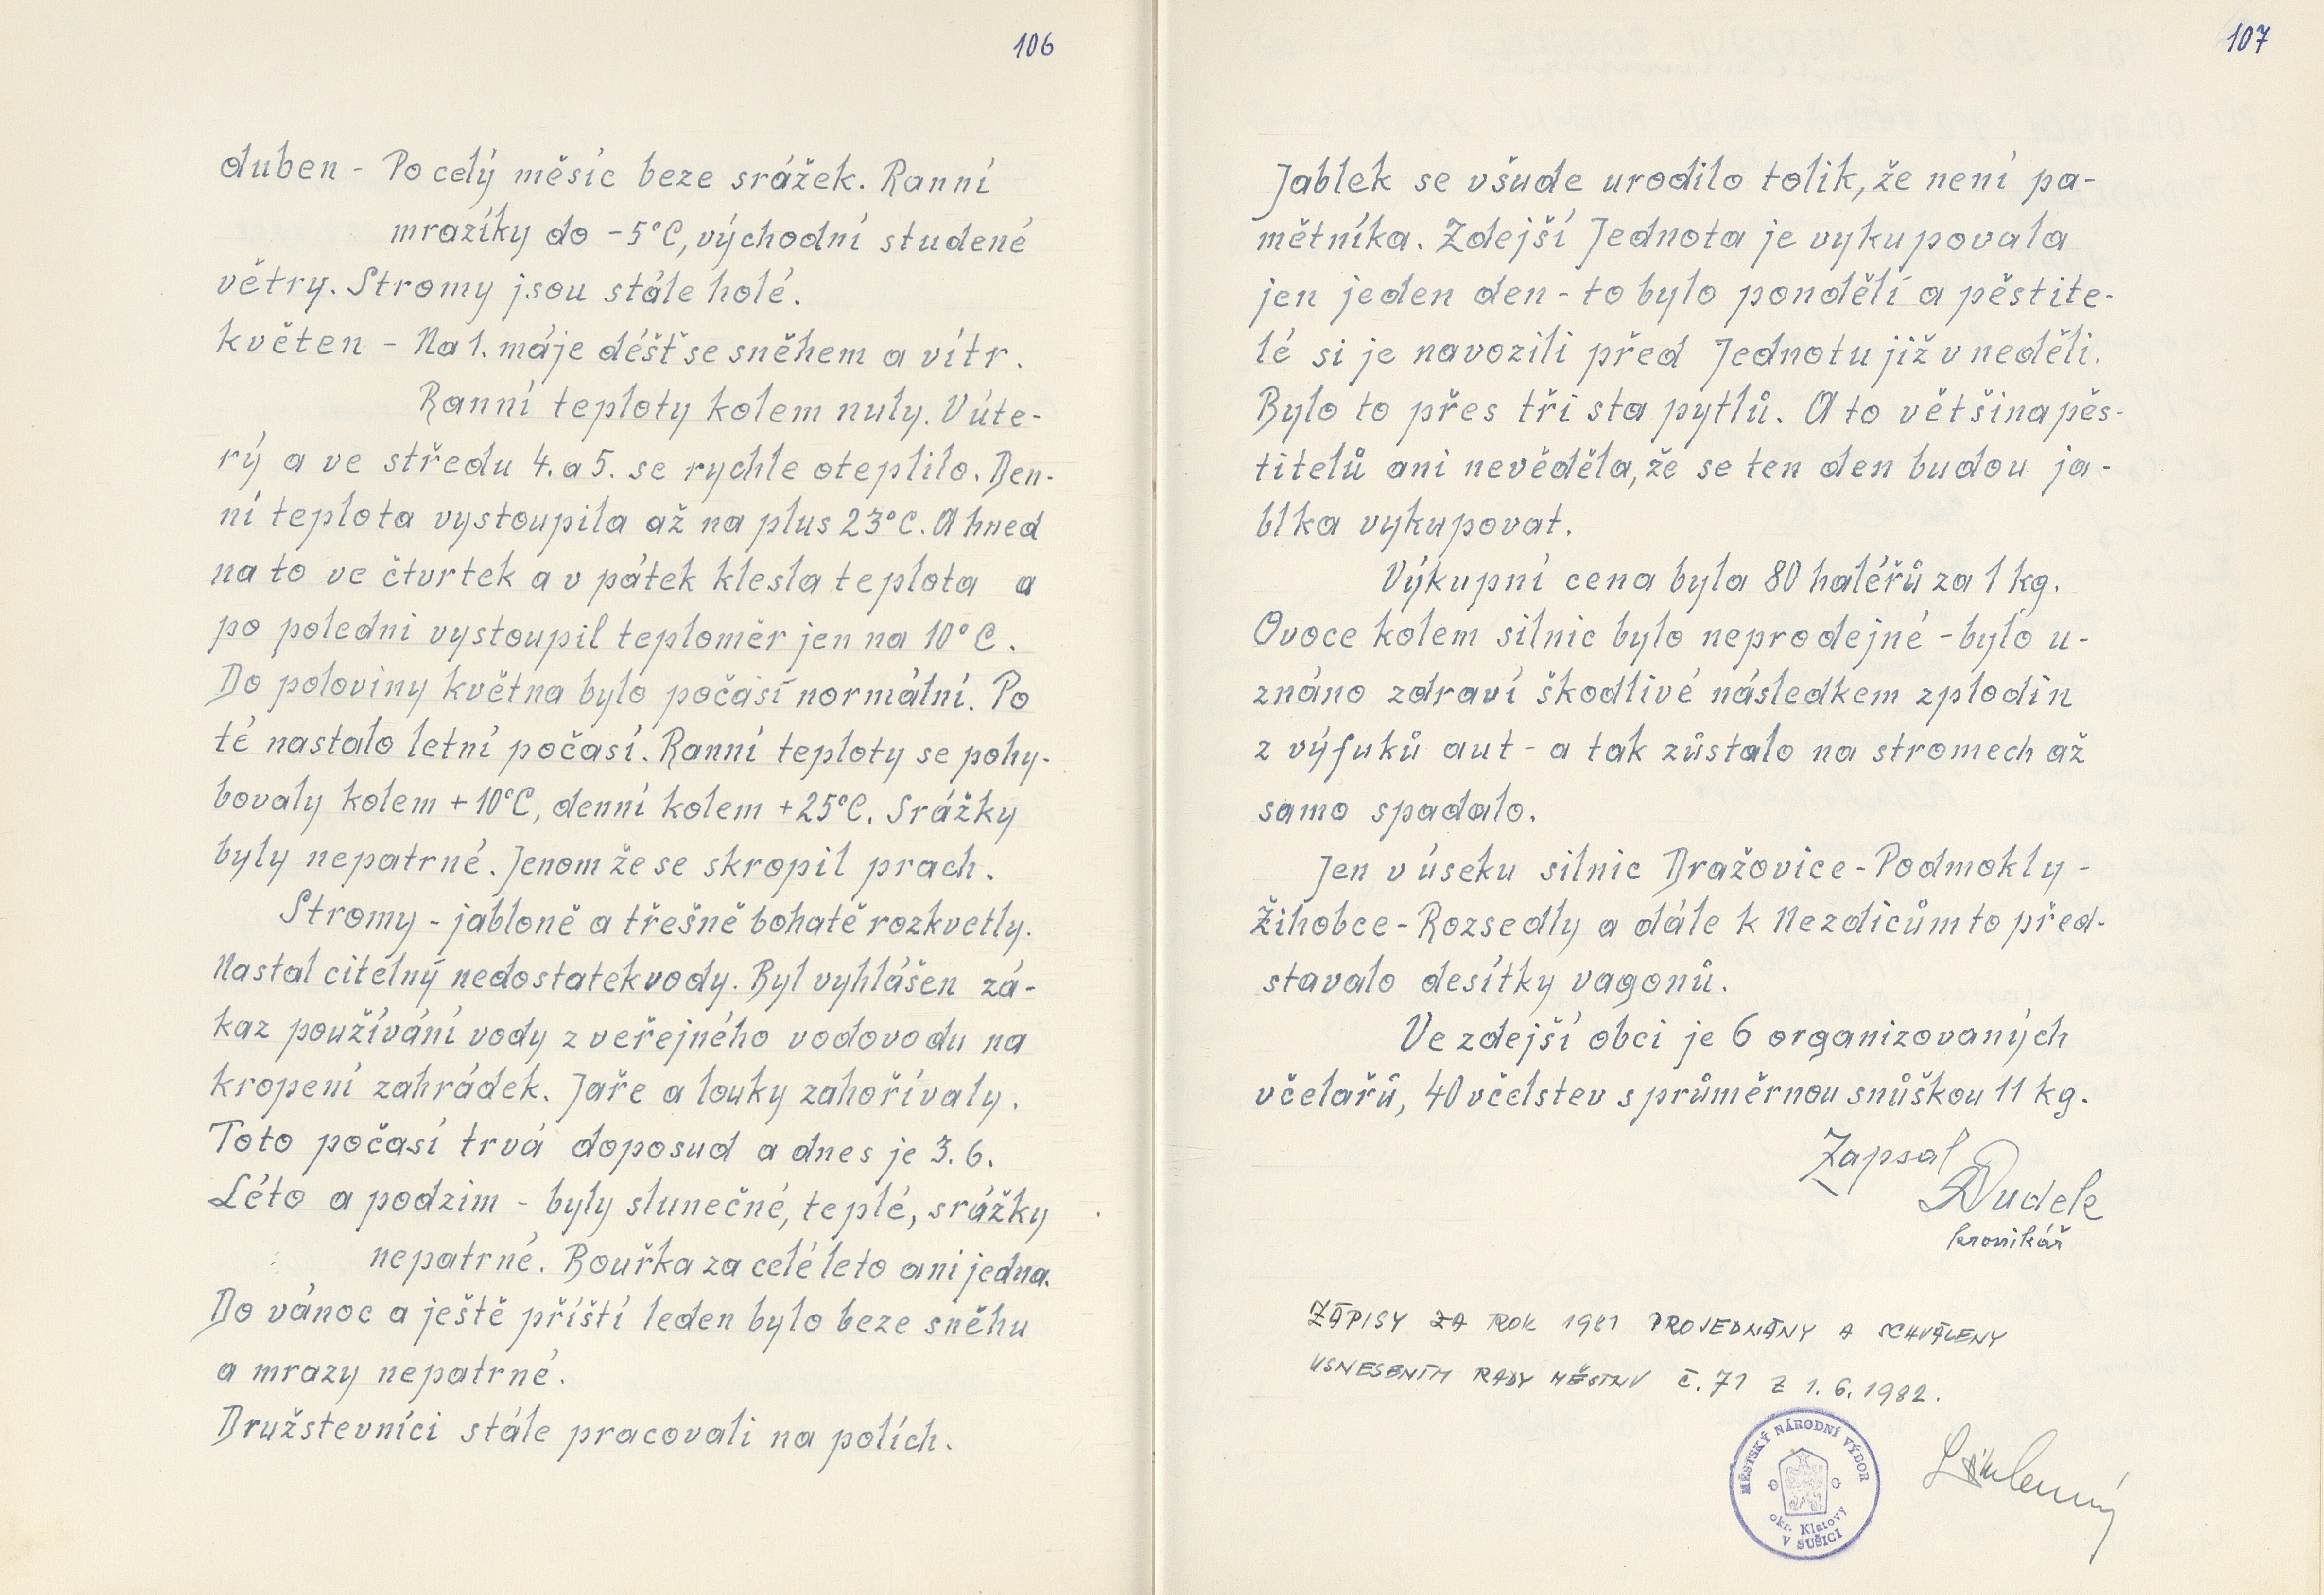 106
duben - Po celý měsíc beze srážek. Ranní
mrazíky do -5°C, východní studené
větry. Stromy jsou stále holé.
květen - Na 1. máje déšť se sněhem a vítr.
Ranní teploty kolem nuly. V úte-
rý a ve středu 4. a 5. se rychle oteplilo. Den-
ní teplota vystoupila až na plus 23°C. A hned
na to ve čtvrtek a v pátek klesla teplota a
po poledni vystoupil teploměr jen na 10°C.
Do poloviny května bylo počasí normální. Po
té nastalo letní počasí. Ranní teploty se pohy-
bovaly kolem +10°C, denní kolem +25°C. Srážky
byly nepatrné. Jenom že se skropil prach.
Stromy - jabloně a třešně bohatě rozkvetly.
Nastal citelný nedostatek vody. Byl vyhlášen zá-
kaz používání vody z veřejného vodovodu na
kropení zahrádek. Jaře a louky zahořívaly.
Toto počasí trvá doposud a dnes je 3. 6.
Léto a podzim - byly slunečné, teplé, srážky
nepatrné. Bouřka za celé leto ani jedna.
Do vánoc a ještě příští leden bylo beze sněhu
a mrazy nepatrné.
Družstevníci stále pracovali na polích.
107
Jablek se všude urodilo tolik, že není pa-
mětníka. Zdejší Jednota je vykupovala
jen jeden den - to bylo pondělí a pěstite-
lé si je navozili před Jednotu již v neděli.
Bylo to přes tři sta pytlů. A to většina pěs-
titelů ani nevěděla, že se ten den budou ja-
blka vykupovat.
Výkupní cena byla 80 haléřů za 1 kg.
Ovoce kolem silnic bylo neprodejné - bylo u-
znáno zdraví škodlivé následkem zplodin
z výfuků aut - a tak zůstalo na stromech až
samo spadalo.
Jen v úseku silnic Dražovice - Podmokly -
Žihobce - Rozsedly a dále k Nezdicům to před-
stavalo desítky vagonů.
Ve zdejší obci je 6 organizovaných
včelařů, 40 včelstev s průměrnou snůškou 11 kg.
Zapsal
Dudele
kronikář
ZÁPISY ZA ROK 1981 PROJEDNÁNY A SCHVÁLENY
USNESENÍM RADY MĚSTNV Č. 71 Z 1. 6. 1982.
MĚSTSKÝ NÁRODNÍ VÝBOR
okr. Klatovy
V SUŠICI